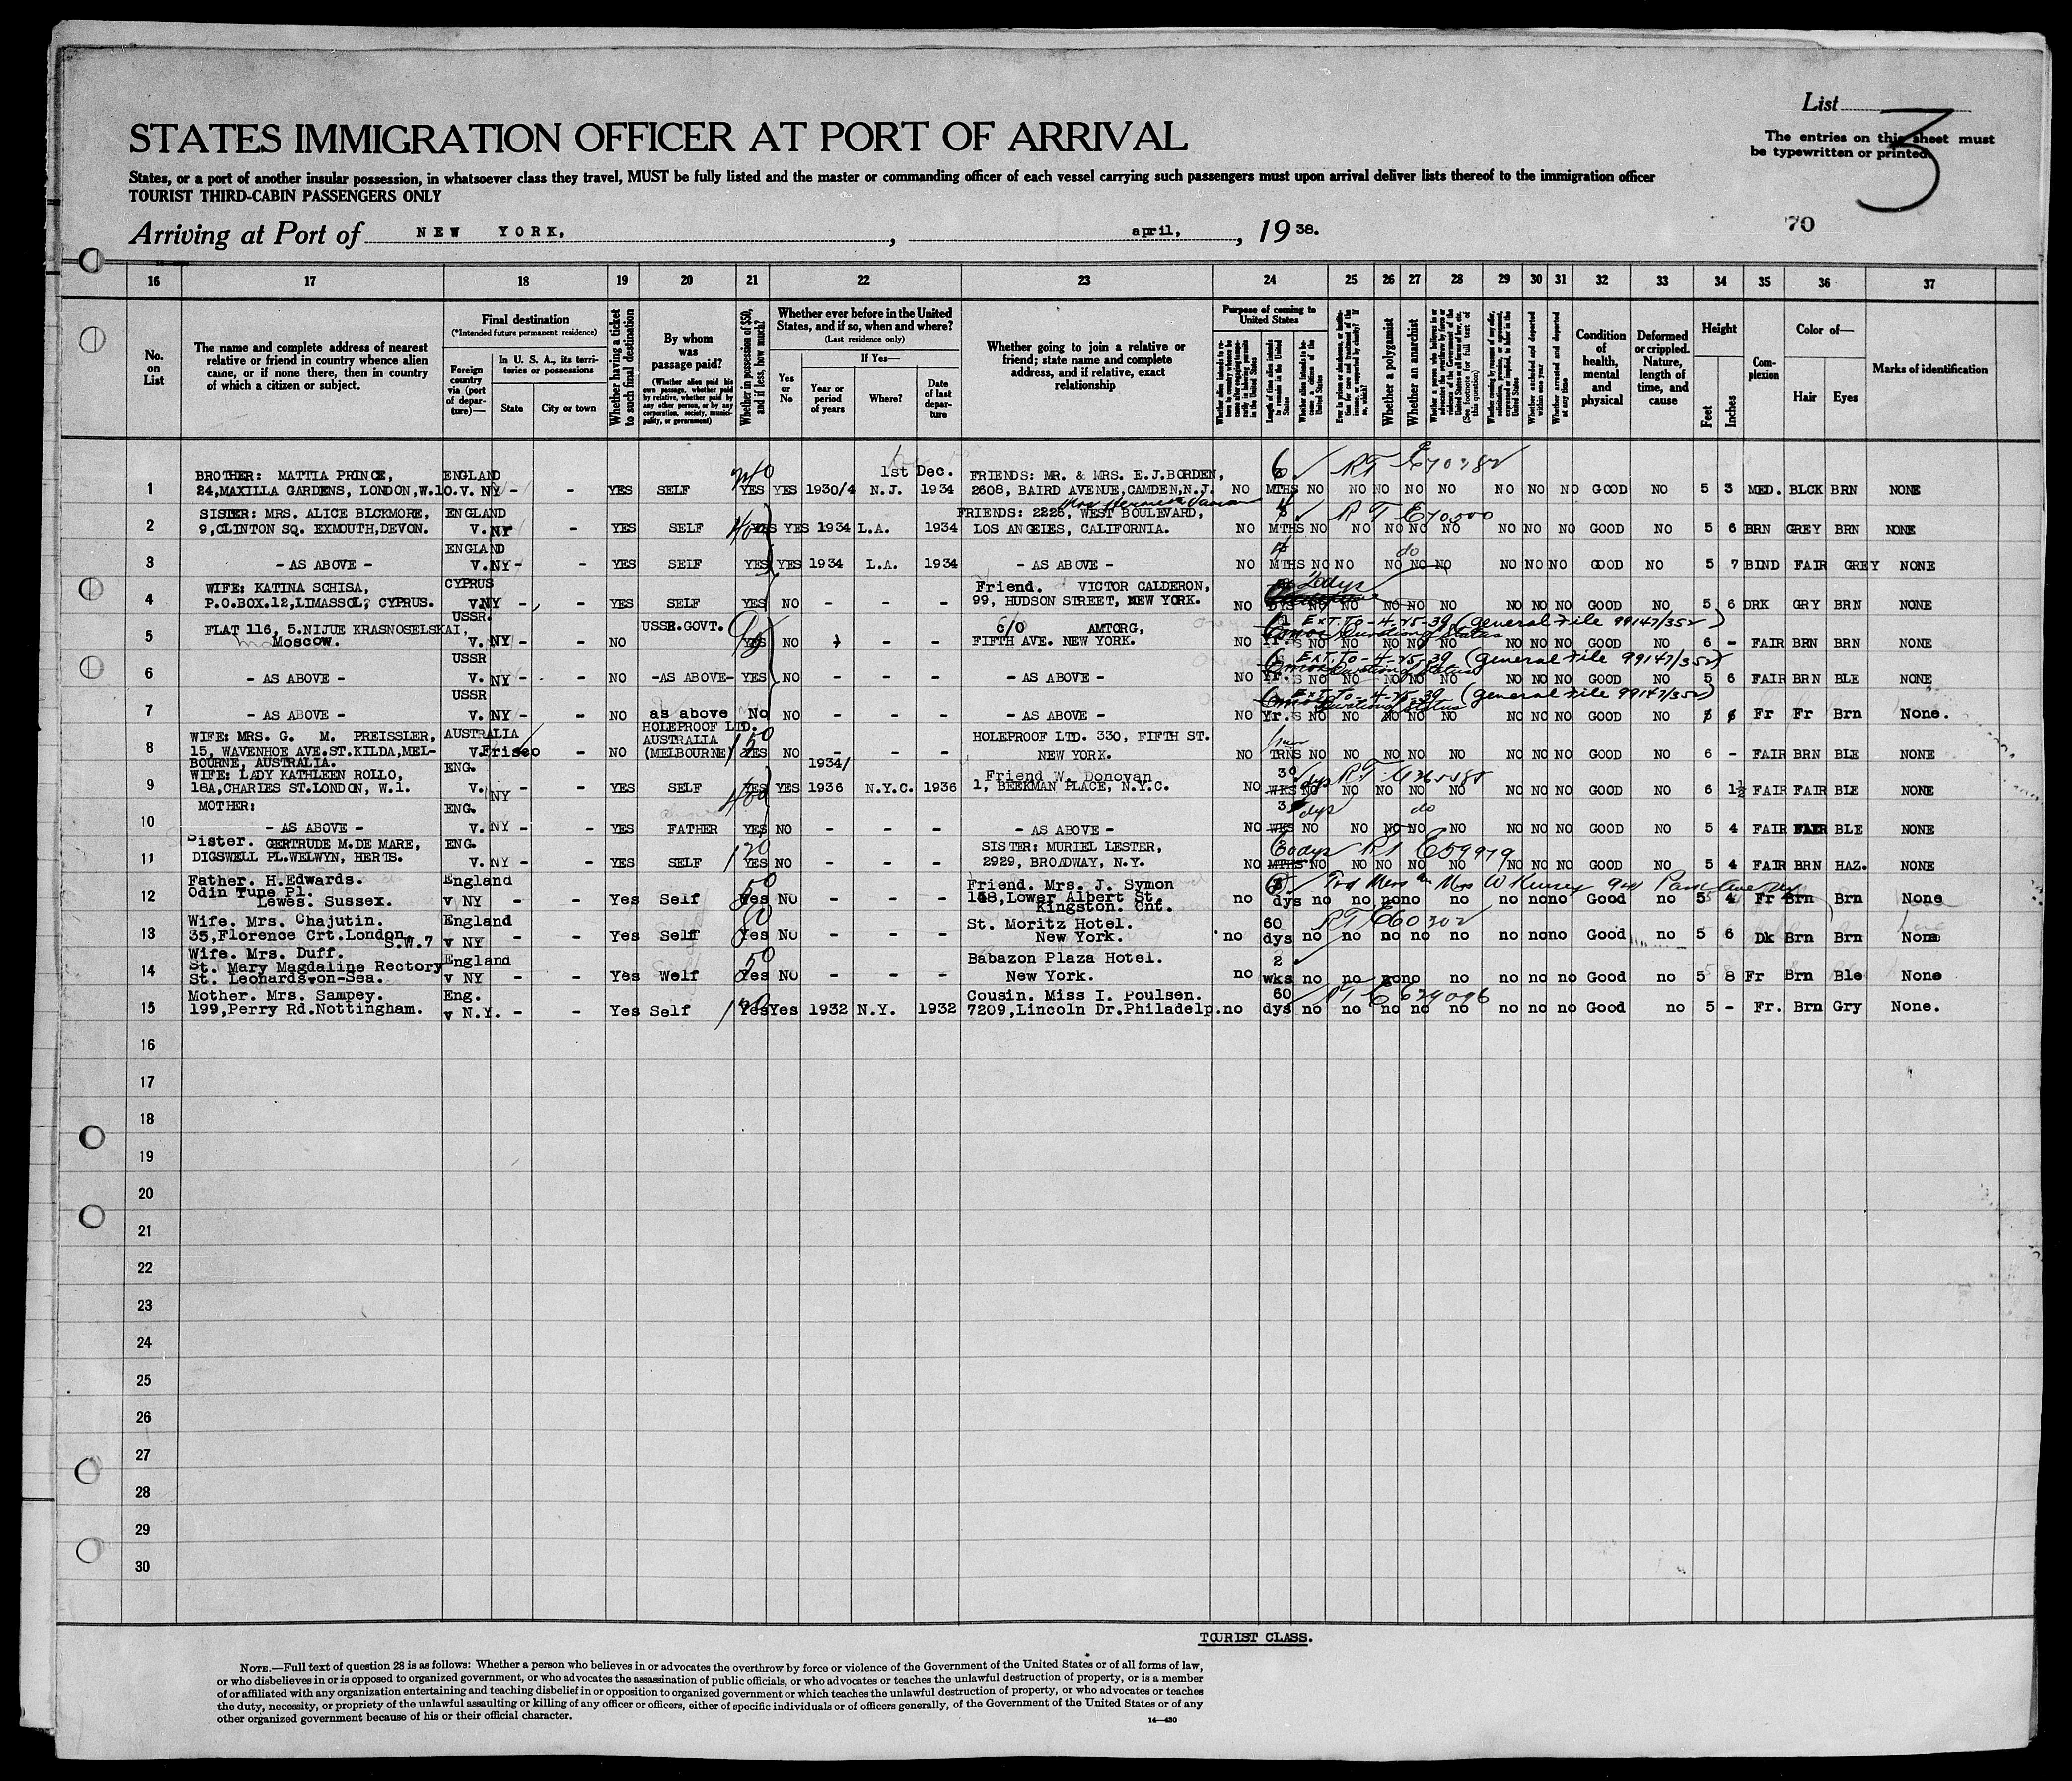 List 3
STATES IMMIGRATION OFFICER AT PORT OF ARRIVAL
The entries on this sheet must be typewritten or printed.
States, or a port of another insular possession, in whatsoever class they travel, MUST be fully listed and the master or commanding officer of each vessel carrying such passengers must upon arrival deliver lists thereof to the immigration officer
TOURIST THIRD-CABIN PASSENGERS ONLY
Arriving at Port of NEW YORK, , april, , 19 38.
70
16 17 18 19 20 21 22 23 24 25 26 27 28 29 30 31 32 33 34 35 36 37
No. on List
The name and complete address of nearest relative or friend in country whence alien came, or if none there, then in country of which a citizen or subject.
Final destination
(*Intended future permanent residence)
Foreign country via (port of departure)—
In U. S. A., its territories or possessions
State
City or town
Whether having a ticket to such final destination
By whom was passage paid?
(Whether alien paid his own passage, whether paid by relative, whether paid by any other person, or by any corporation, society, municipality, or government)
Whether in possession of $50, and if less, how much?
Whether ever before in the United States, and if so, when and where?
(Last residence only)
Yes or No
If Yes—
Year or period of years
Where?
Date of last departure
Whether going to join a relative or friend; state name and complete address, and if relative, exact relationship
Purpose of coming to United States
Length of time alien intends to remain in the United States
Whether alien intends to become a citizen of the United States
Whether a polygamist
Whether an anarchist
(See footnote for full text of this question)
Whether excluded and deported within one year
Whether arrested and deported at any time
Condition of health, mental and physical
Deformed or crippled. Nature, length of time, and cause
Height
Feet
Inches
Complexion
Color of—
Hair
Eyes
Marks of identification
1 BROTHER: MATTIA PRINCE, 24,MAXILLA GARDENS, LONDON,W.10. ENGLAND V. NY - - YES SELF YES YES 1930/4 N.J. 1st Dec. 1934 FRIENDS: MR. & MRS. E.J.BORDEN, 2608, BAIRD AVENUE,CAMDEN,N.J. NO 6 MTHS NO RT NO NO NO NO NO NO NO GOOD NO 5 3 MED. BLCK BRN NONE
2 SISTER: MRS. ALICE BLCKMORE, 9,CLINTON SQ. EXMOUTH,DEVON. ENGLAND V.NY - YES SELF 400 YES YES 1934 L.A. 1934 FRIENDS: 2226, WEST BOULEVARD, LOS ANGELES, CALIFORNIA. NO MTHS NO RT E70500 NO NO NO NO NO NO NO GOOD NO 5 6 BRN GREY BRN NONE
3 - AS ABOVE - ENGLAND V.NY- - YES SELF YES YES 1934 L.A. 1934 - AS ABOVE - NO MTHS NO NO do NO NO NO NO NO NO GOOD NO 5 7 BIND FAIR GREY NONE
4 WIFE: KATINA SCHISA, P.O.BOX.12,LIMASSOL, CYPRUS. CYPRUS V.NY - - YES SELF YES NO - - - Friend. VICTOR CALDERON, 99, HUDSON STREET, NEW YORK. NO DYS NO NO NO NO NO NO NO NO GOOD NO 5 6 DRK GRY BRN NONE
5 FLAT 116, 5.NIJUE KRASNOSELSKAI, Moscow. USSR. V. NY - - NO USSR.GOVT. YES NO - - c/o AMTORG, FIFTH AVE. NEW YORK. NO Yr. Ext. To-4-25-39 (general File 99147/352) NO NO NO NO NO NO NO NO GOOD NO 6 - FAIR BRN BRN NONE
6 - AS ABOVE - USSR V. NY - - NO -AS ABOVE- YES NO - - - - AS ABOVE - NO Yr. Ext. To-4-25-39 (general File 99147/352) NO NO NO NO NO NO NO NO GOOD NO 5 6 FAIR BRN BLE NONE
7 - AS ABOVE - USSR V. NY - - NO as above No NO - - - - AS ABOVE - NO Yr. Ext. To-4-25-39 (general File 99147/352) NO NO NO NO NO NO NO NO GOOD NO Fr Fr Brn None.
8 WIFE: MRS. G. M. PREISSLER, 15, WAVENHOE AVE.ST.KILDA,MELBOURNE, AUSTRALIA. AUSTRALIA V.Frisco - NO HOLEPROOF LTD. AUSTRALIA (MELBOURNE) 150 YES NO - - - HOLEPROOF LTD. 330, FIFTH ST. NEW YORK. NO TRNS NO NO NO NO NO NO NO NO GOOD NO 6 - FAIR BRN BLE NONE
9 WIFE: LADY KATHLEEN ROLLO, 18A,CHARLES ST.LONDON, W.1. ENG. V. NY - YES SELF YES YES 1934/1936 N.Y.C. 1936 Friend W. Donovan 1, BEEKMAN PLACE, N.Y.C. NO 30 dys WKS NO RT NO NO NO NO NO NO NO GOOD NO 6 1½ FAIR FAIR BLE NONE
10 MOTHER: - AS ABOVE - ENG. V. NY - - YES FATHER YES NO - - - - AS ABOVE - NO dys WKS NO do NO NO NO NO NO NO NO GOOD NO 5 4 FAIR FAIR BLE NONE
11 Sister. GERTRUDE M.DE MARE, DIGSWELL PL.WELWYN, HERTS. ENG. V. NY - - YES SELF 120 YES NO - - - SISTER: MURIEL LESTER, 2929, BROADWAY, N.Y. NO 60dys MTHS NO RT E59979 NO NO NO NO NO NO NO GOOD NO 5 4 FAIR BRN HAZ. NONE
12 Father. H.Edwards. Odin Tune Pl. Lewes. Sussex. England v NY - - Yes Self 50 Yes No - - - Friend. Mrs. J. Symon 148,Lower Albert St. Kingston. Ont. no dys no no no no no no no no Good no 5 4 Fr Brn Brn None
13 Wife. Mrs. Chajutin. 35,Florence Crt.London, S.W.7 England v NY - - Yes Self 60 Yes No - - - St. Moritz Hotel. New York. no 60 dys no RT E60302 no no no no no no no Good no 5 6 Dk Brn Brn None
14 Wife. Mrs. Duff. St. Mary Magdaline Rectory St. Leonards-on-Sea. England v NY - - Yes Welf 50 Yes No - - - Babazon Plaza Hotel. New York. no 2 wks no no no no no no no no Good no 5 8 Fr Brn Ble None
15 Mother. Mrs. Sampey. 199,Perry Rd.Nottingham. Eng. v N.Y. - - Yes Self 120 Yes Yes 1932 N.Y. 1932 Cousin. Miss I. Poulsen. 7209,Lincoln Dr.Philadelp. no 60 dys no RT E629096 no no no no no no no Good no 5 - Fr. Brn Gry None.
16
17
18
19
20
21
22
23
24
25
26
27
28
29
30
TOURIST CLASS.
NOTE.—Full text of question 28 is as follows: Whether a person who believes in or advocates the overthrow by force or violence of the Government of the United States or of all forms of law,
or who disbelieves in or is opposed to organized government, or who advocates the assassination of public officials, or who advocates or teaches the unlawful destruction of property, or is a member
of or affiliated with any organization entertaining and teaching disbelief in or opposition to organized government or which teaches the unlawful destruction of property, or who advocates or teaches
the duty, necessity, or propriety of the unlawful assaulting or killing of any officer or officers, either of specific individuals or of officers generally, of the Government of the United States or of any
other organized government because of his or their official character.
14—430